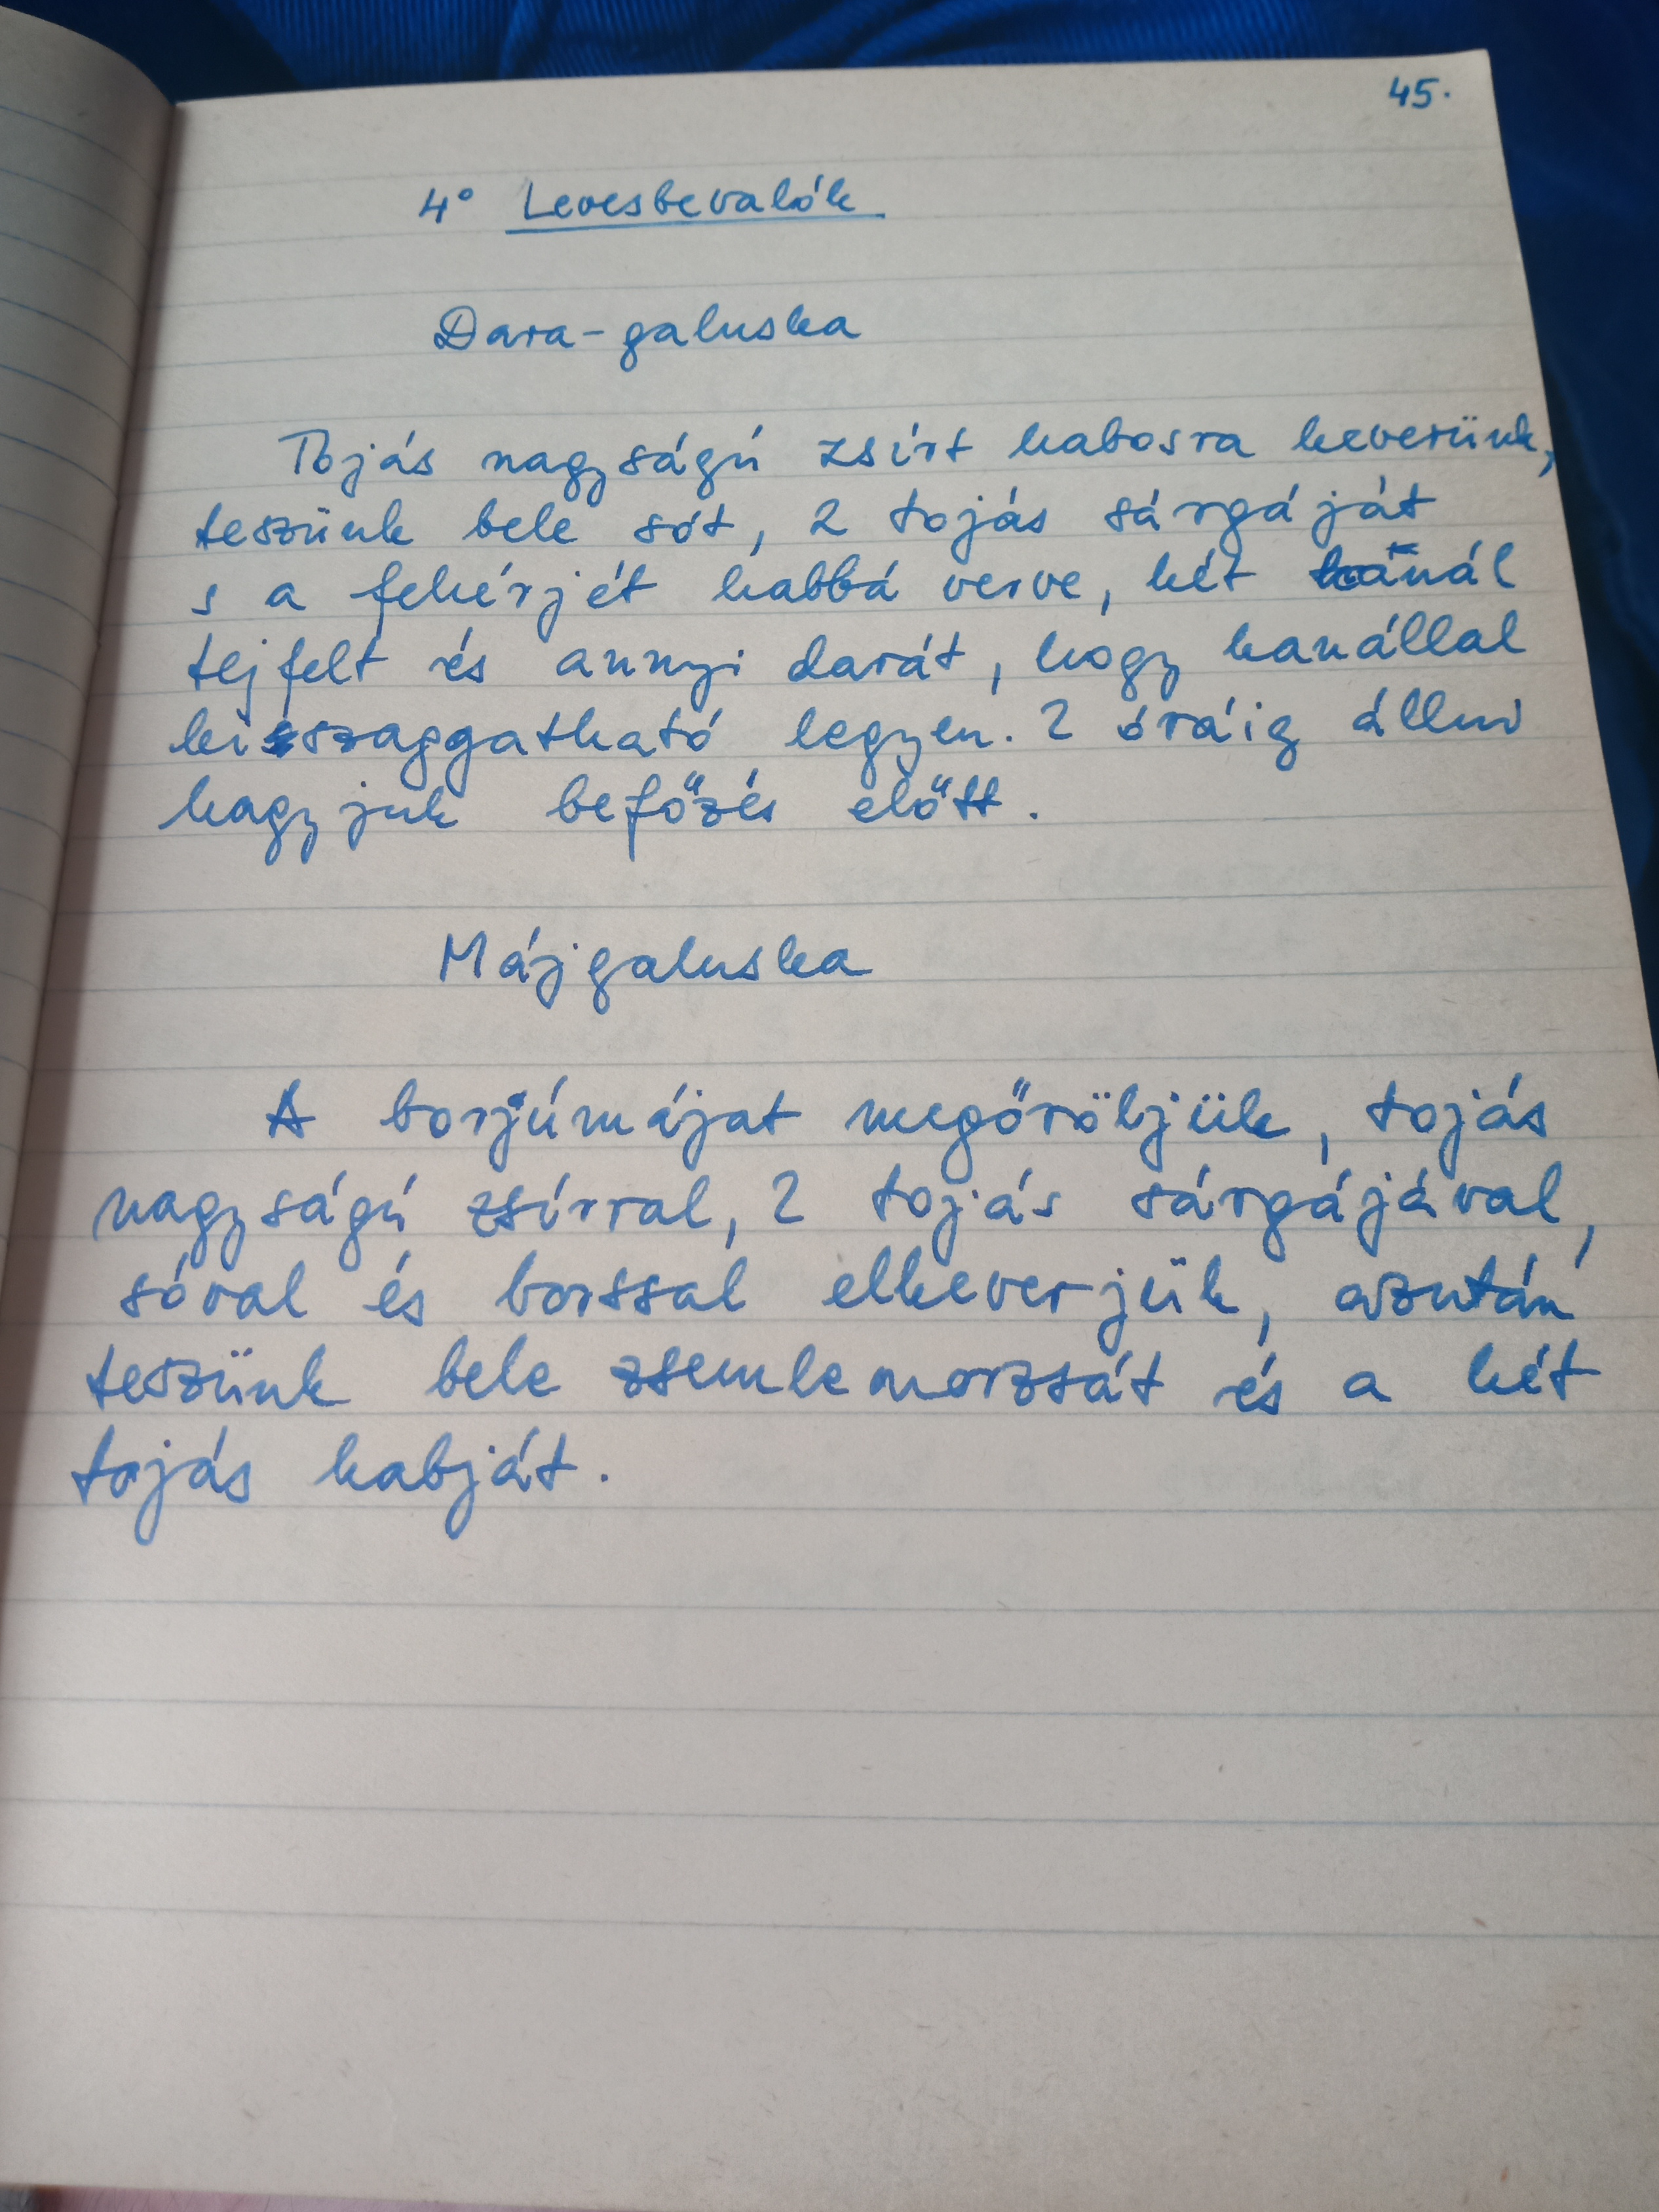 45.
4° Levesbevalók
Dara-galuska
Tojás nagyságú zsírt habosra keverünk,
teszünk bele sót, 2 tojás sárgáját
s a fehérjét habbá verve, két kanál
tejfelt és annyi darát, hogy kanállal
kiszaggatható legyen. 2 óráig állni
hagyjuk befőzés előtt.
Májgaluska
A borjúmájat megőröljük, tojás
nagyságú zsírral, 2 tojás sárgájával,
sóval és borssal elkeverjük, azután
teszünk bele zsemlemorzsát és a két
tojás habját.